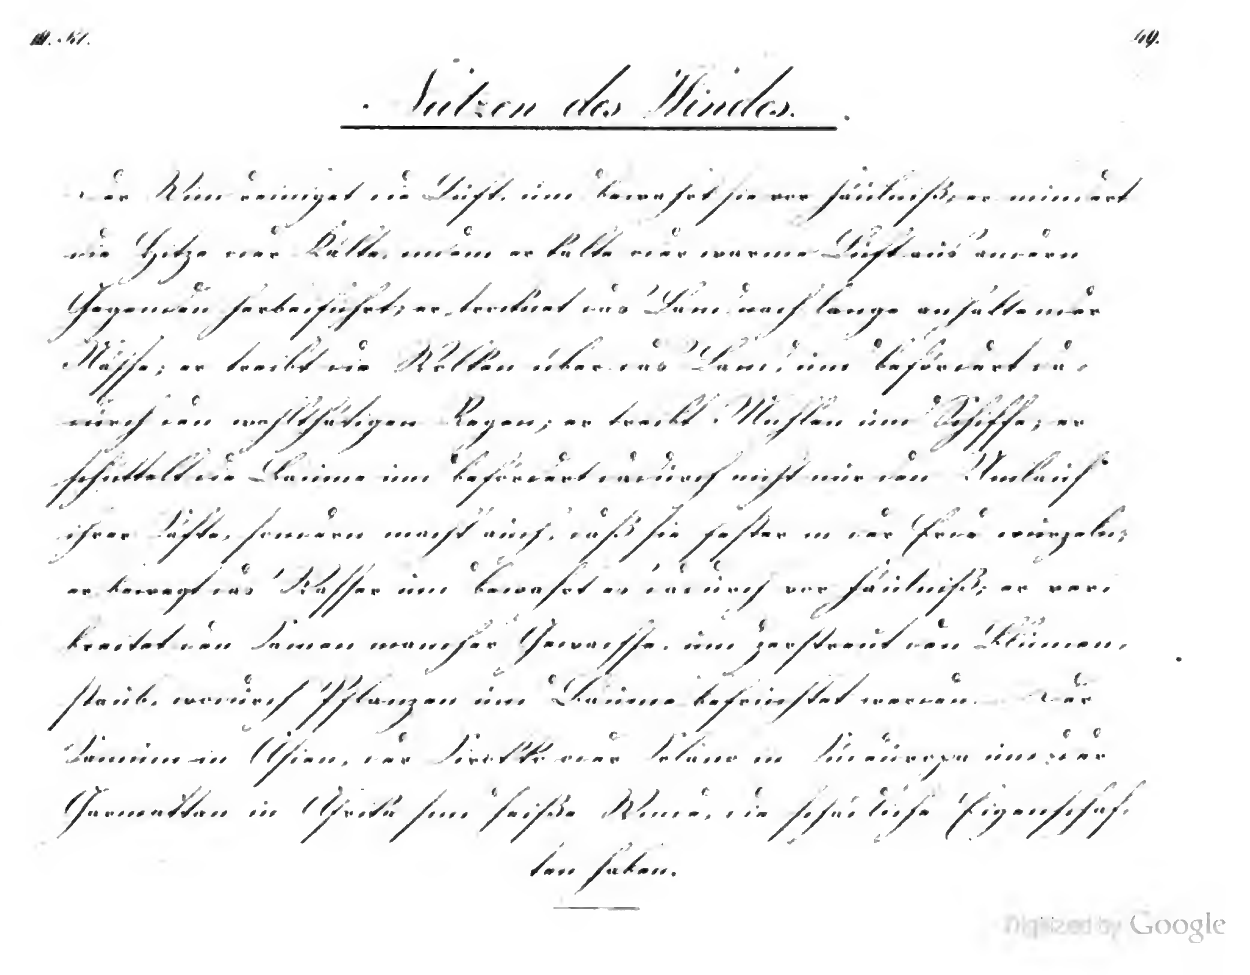 49.
Nutzen des Windes.
Der Wind reiniget die Luft, und bewahrt sie vor Fäulniß; er mindert
die Hitze oder Kälte, indem er kalte oder warme Luft aus andern
Gegenden herbeiführt; er trocknet das Land nach lange anhaltender
Nässe; er treibt die Wolken über das Land, und befördert da-
durch den wohlthätigen Regen; er treibt Mühlen und Schiffe; er
schüttelt die Bäume und befördert dadurch nicht nur den Umlauf
ihrer Säfte, sondern macht auch, daß sie fester in der Erde wurzeln;
er bewegt das Wasser und bewahrt es dadurch vor Fäulniß; er ver-
breitet den Samen mancher Gewächse, und zerstreut den Blumen-
staub, wodurch Pflanzen und Bäume befruchtet werden. Der
Samum in Asien, der Sirokko oder Solano in Südeuropa und der
Harmattan in Afrika sind heiße Winde, die schädliche Eigenschaf-
ten haben.
Digitized by Google